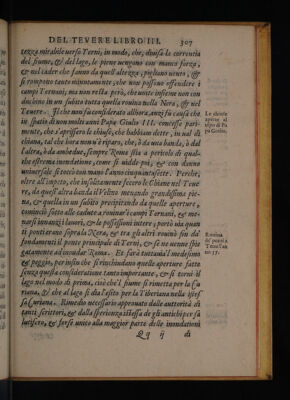 DEL TEVERE LIBRO III. 307
tezza mirabile verso Terni, in modo, che, diuisa la correntia
del fiume, & del lago, le piene uengono con manco forza,
& nel cader che fanno da quell'altezza, pigliano uento, &
si rompono tanto minutamente, che non possono offendere i
campi Ternani, ma non resta però, che unite insieme non con
duchino in un subito tutta quella rouina nella Nera, & nel
Teuere. Il che non fu considerato allhora, anzi fu causa che
in spatio di non molti anni Papa Giulio III. concesse pari
mente, che s'aprissero le chiuse, che habbiam dette, in ual di
chiana, tal che hora mu'è riparo, che, ò da una banda, ò dal
l'altra, ò da ambedue, sempre Roma stia a pericolo di qual-
che estrema inondatione, come si uidde poi, & con danno
uniuersale si toccò con mano l'anno cinquantasette. Perche,
oltre all'impeto, che insolitamente fecero le Chiane nel Teue
re, da quell'altra banda il Velino menando grandissime pie-
ne, & quella in un subito precipitando da quelle aperture,
cominciò sotto alle cadute a rouinar'i campi Ternani, & me-
narsi innanzi i lauori, & le possessioni intere, portò uia quan
ti ponti erano sopra la Nera, & tra gli altri rouinò fin da'
fondamenti il ponte principale di Terni, & se ne uenne spie
gatamente ad inondar Roma. Et farà tuttauia'l medesimo
& peggio, per insin che si rinchiudano quelle aperture fatte
senza questa consideratione tanto importante, & si torni il
lago nel modo di prima, cioè che'l fiume si rimetta per la Cu
riana, & che al lago si dia l'esito per la Tiberiana nella istes
sa Curiana. Rimedio necessario approuato dalle auttorità di
tanti scrittori, & dalla sperienza istessa de gli antichi per sa
lutifero, & forse unico alla maggior parte delle inondationi
Qq ij di
Le chiane
aperte al
tẽpo di Pa
pa Giulio.
Rouina
de' ponti à
Terni l'an
no 57.